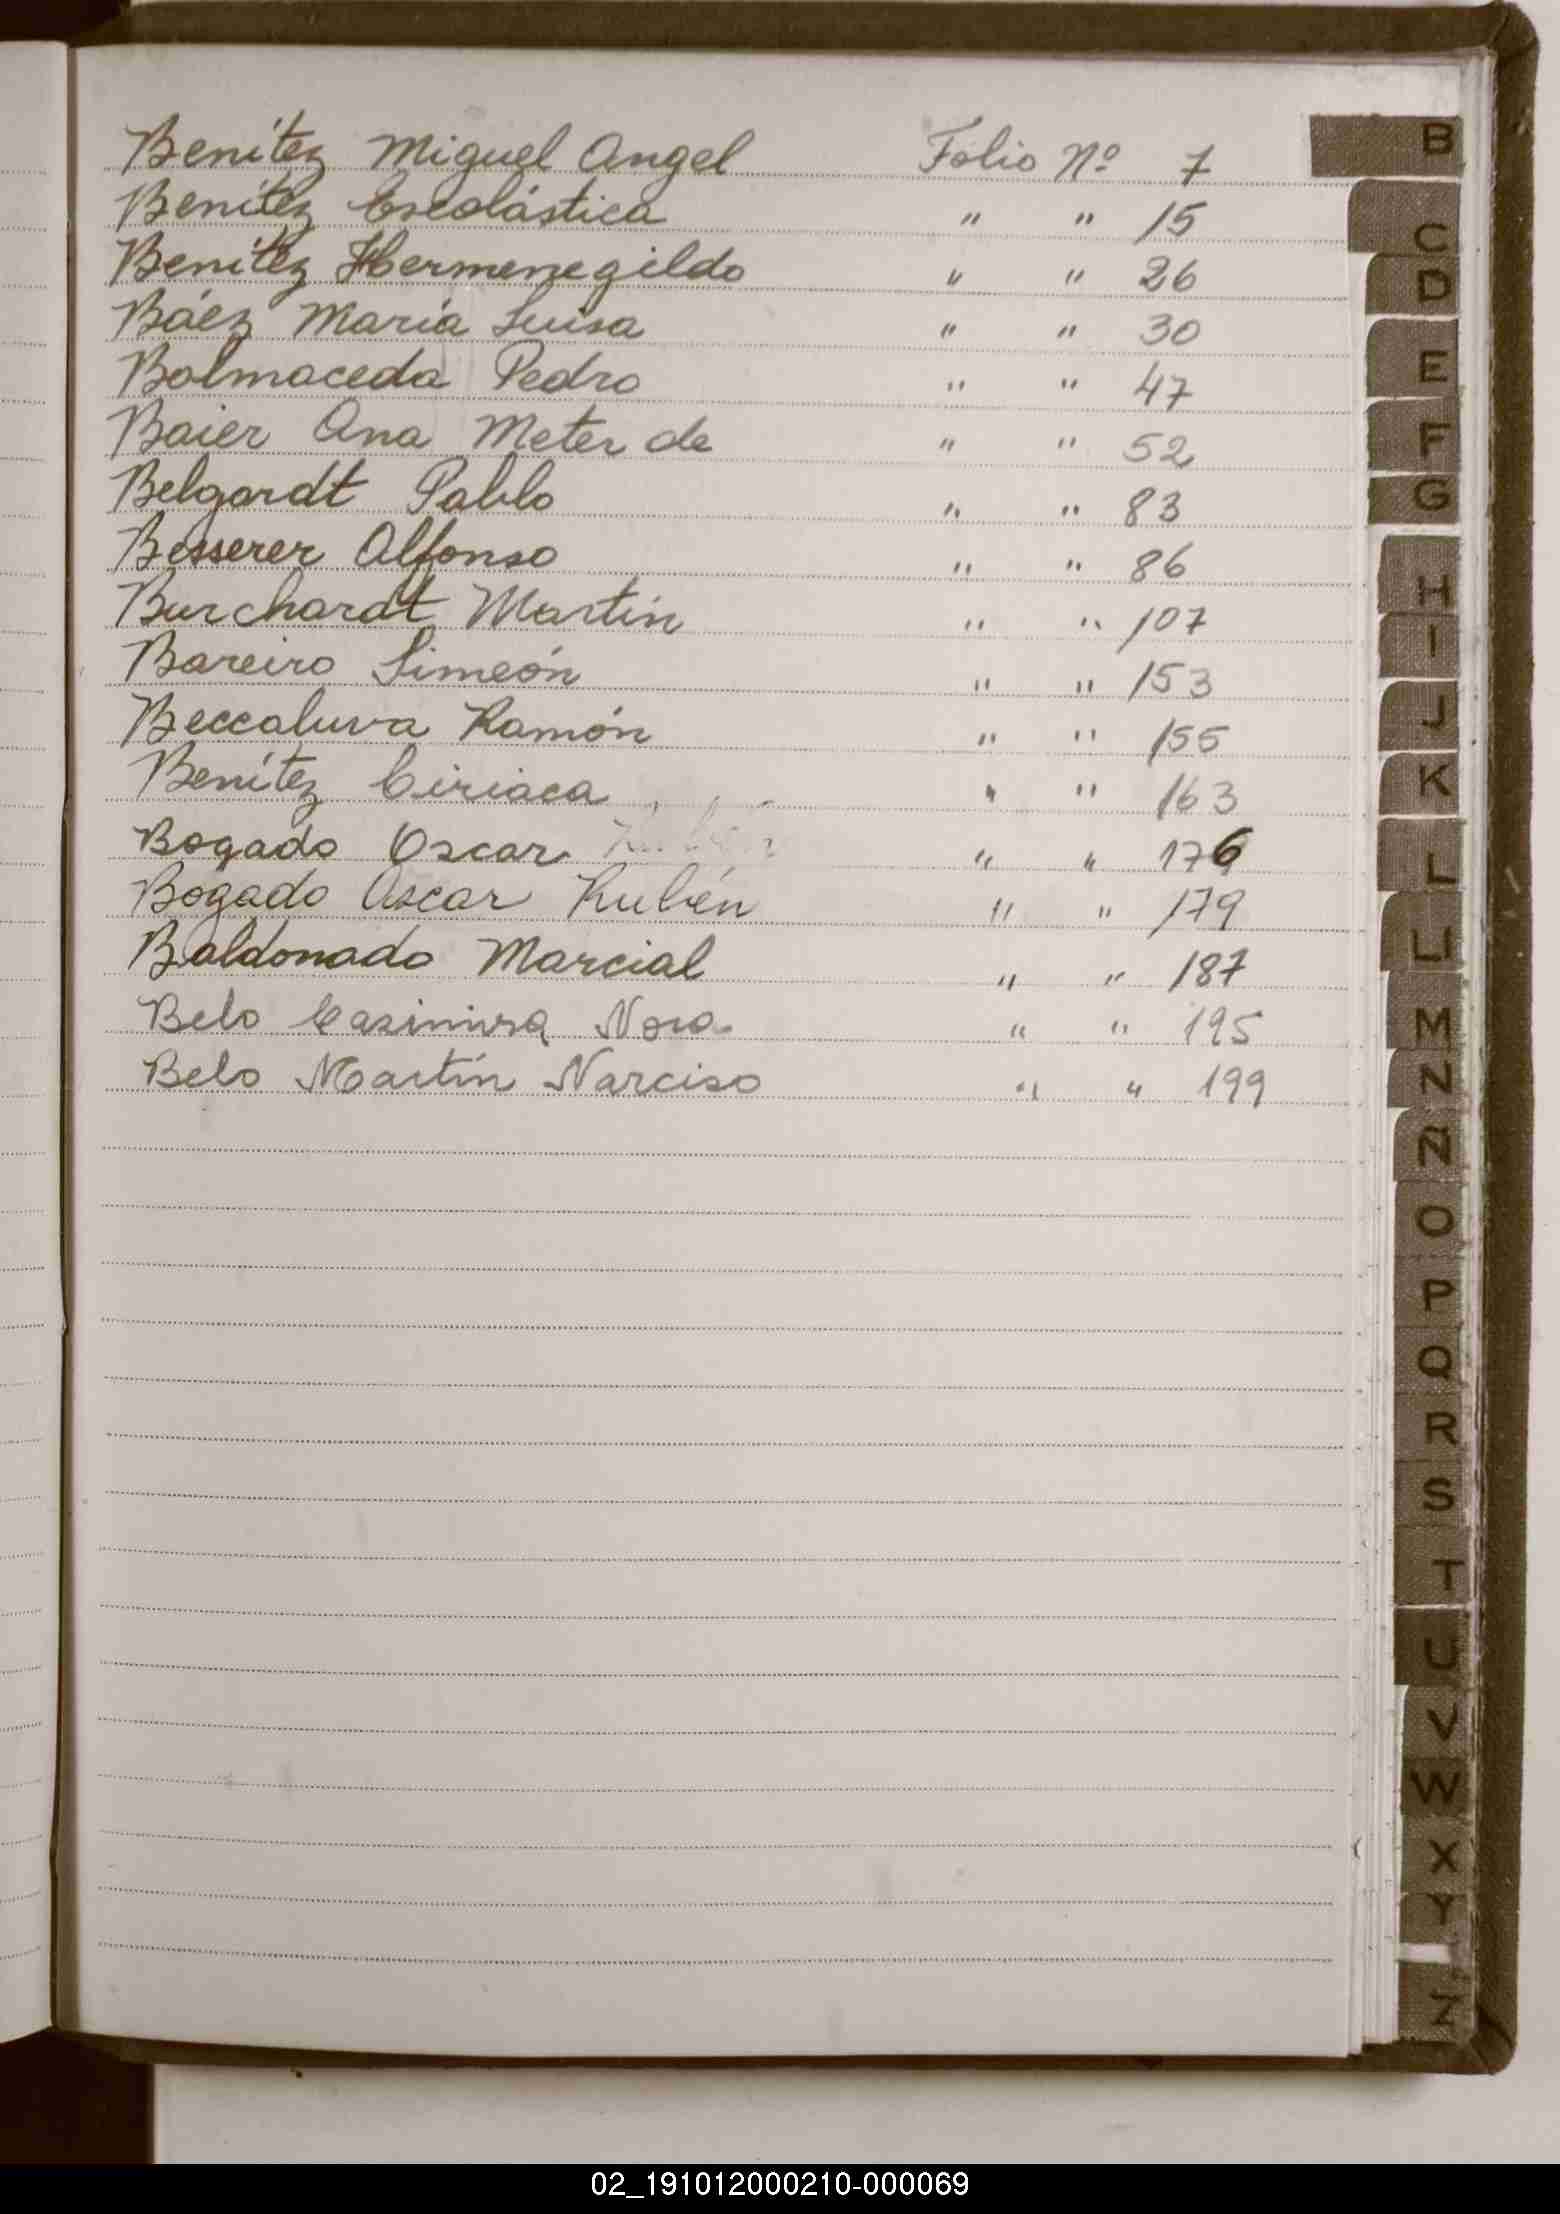 Benítez Miguel Angel Folio Nº 7
Benítez Escolástica " " 15
Benítez Hermenegildo " " 26
Báez María Luisa " " 30
Bolmaceda Pedro " " 47
Baier Ana Meter de " " 52
Belgardt Pablo " " 83
Besserer Alfonso " " 86
Burchardt Martín " " 107
Bareiro Simeón " " 153
Beccaluva Ramón " " 155
Benítez Ciriaca " " 163
Bogado Oscar " " 176
Bogado Oscar Rubén " " 179
Baldonado Marcial " " 187
Belo Casimira Nora " " 195
Belo Martín Narciso " " 199
B
C
D
E
F
G
H
I
J
K
L
LL
M
N
Ñ
O
P
Q
R
S
T
U
V
W
X
Y
Z
02_191012000210-000069